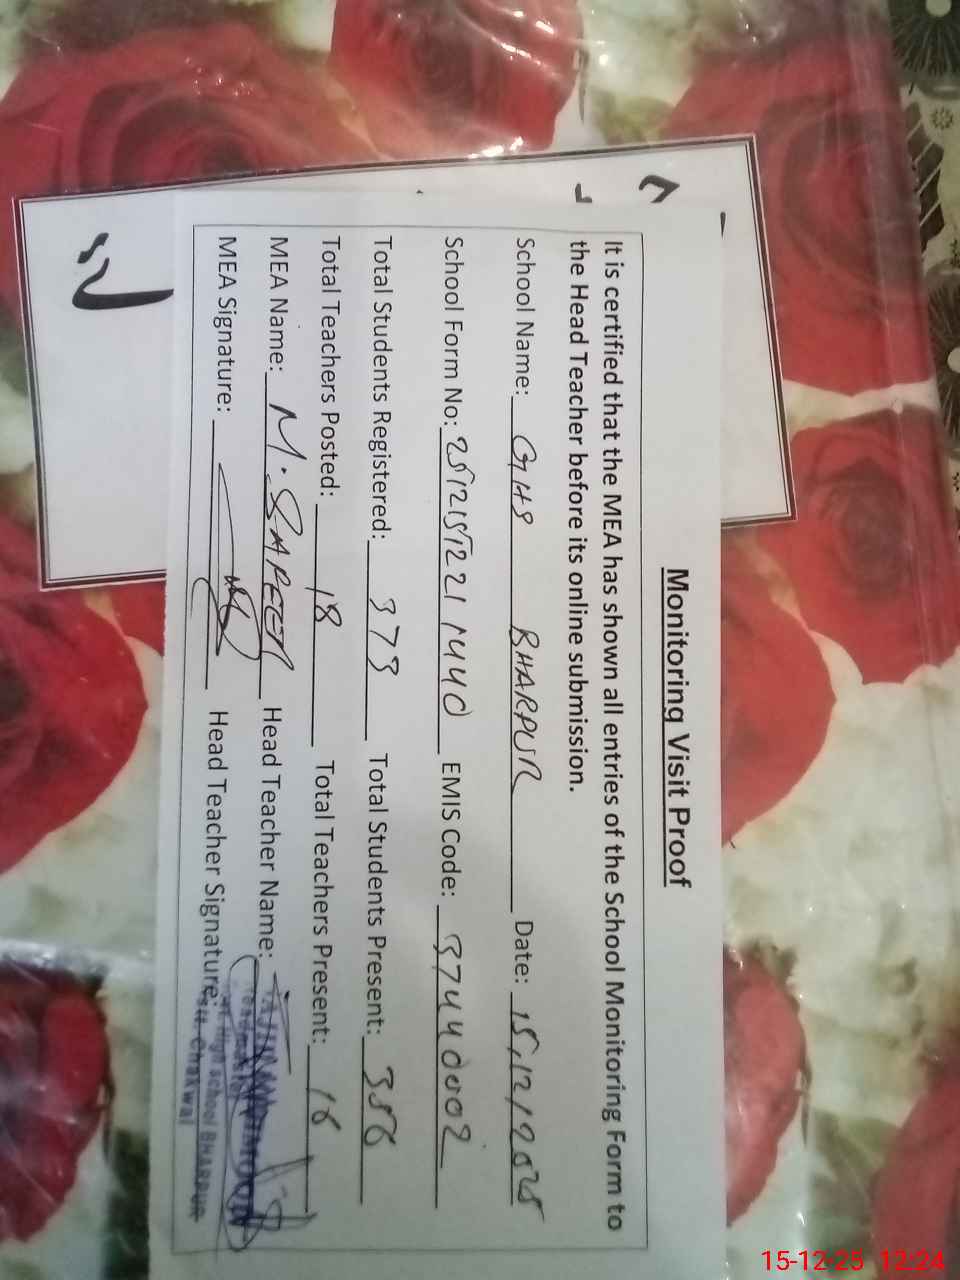 Monitoring Visit Proof
It is certified that the MEA has shown all entries of the School Monitoring Form to
the Head Teacher before its online submission.
School Name: GHS BHARPUR Date: 15,12/2025
School Form No: EMIS Code: 37440002
Total Students Registered: 373 Total Students Present: 356
Total Teachers Posted: 18 Total Teachers Present: 16
MEA Name: M. Head Teacher Name:
MEA Signature: Head Teacher Signature:
High School BHARPUR
Chakwal
15-12-25 12:24